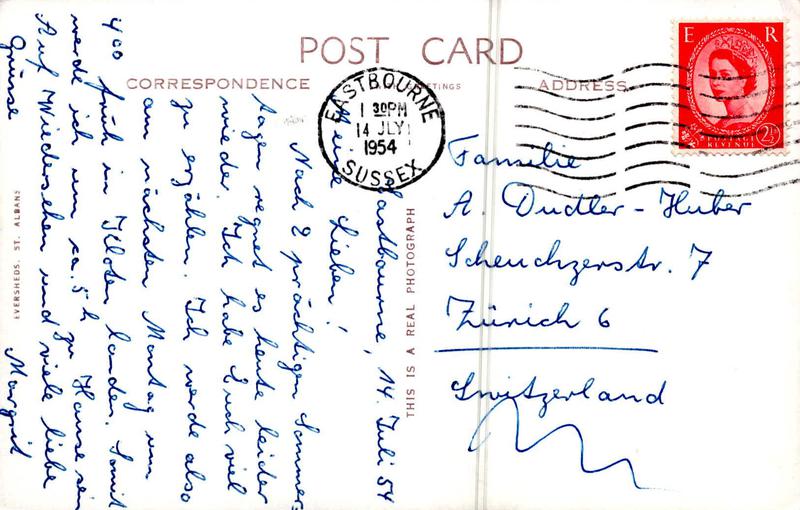 POST CARD
CORRESPONDENCE
ADDRESS
EASTBOURNE
1 30PM
14 JLY
1954
SUSSEX
E R
POSTAGE
REVENUE
2½D
Eastbourne, 14. Juli 54
Meine Lieben!
Nach 2 prächtigen Sommer-
tagen regnet es heute leider
wieder. Ich habe Euch viel
zu erzählen. Ich werde also
am nächsten Montag um
400 früh in Kloten landen. Somit
werde ich um ca. 5 h zu Hause sein
Auf Wiedersehen und viele liebe
Grüsse
Margrit
EVERSHEDS, ST. ALBANS
THIS IS A REAL PHOTOGRAPH
Familie
A. Dudler-Huber
Scheuchzerstr. 7
Zürich 6
Switzerland